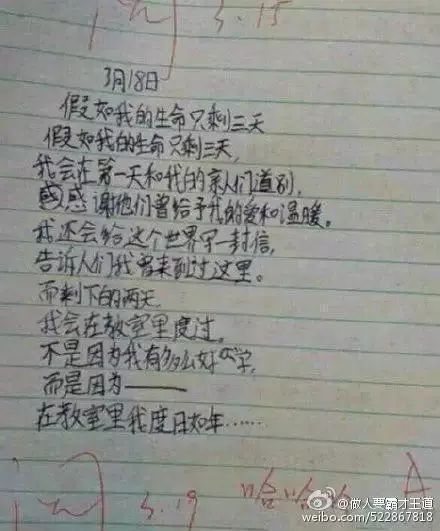 阅 3.15
3月18日
假如我的生命只剩三天
假如我的生命只剩三天,
我会在第一天和我的亲人们道别,
感谢他们曾给予我的爱和温暖。
我还会给这个世界写一封信,
告诉人们我曾来到过这里。
而剩下的两天,
我会在教室里度过,
不是因为我有多么好学,
而是因为——
在教室里我度日如年……
阅 3.19 哈哈哈 A
@做人要霸才王道
weibo.com/522867818